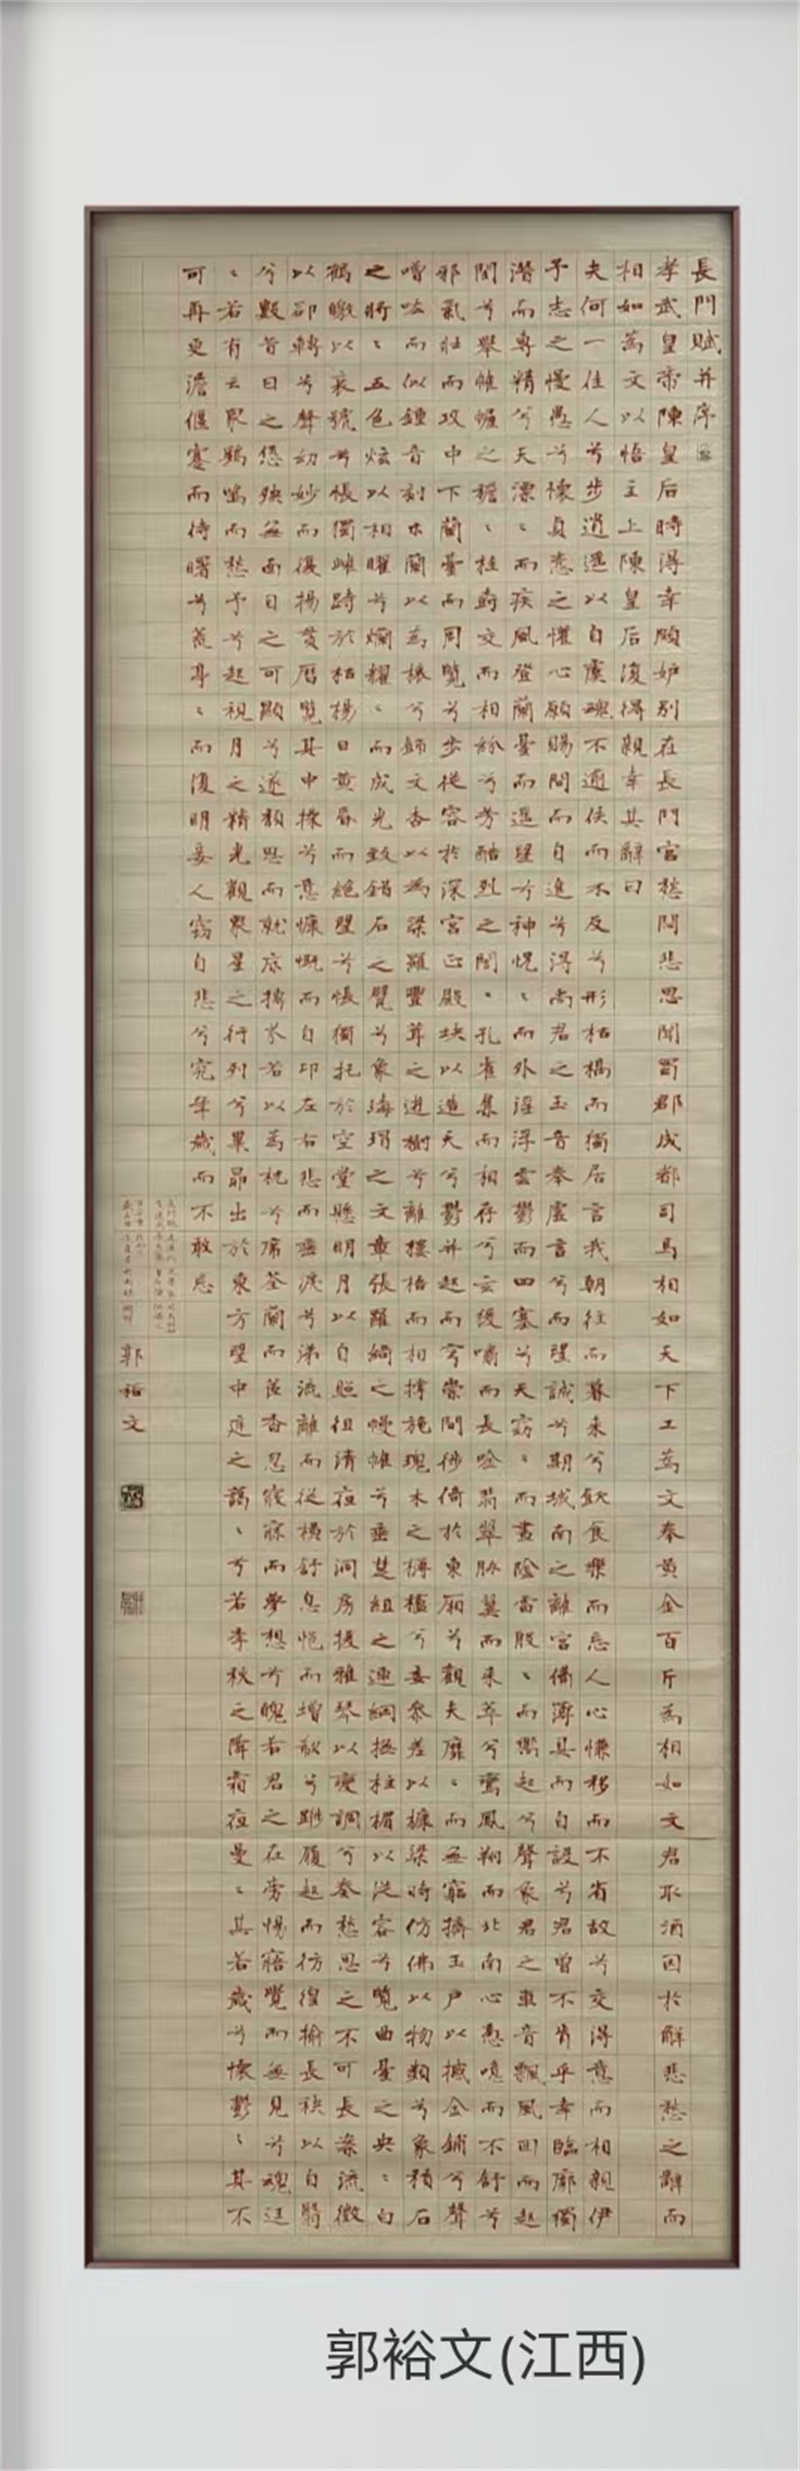 長門賦并序
孝武皇帝陳皇后時得幸頗妒別在長門宮愁悶悲思聞蜀郡成都司馬相如天下工為文奉黃金百斤為相如文君取酒因於解悲愁之辭而
相如為文以悟主上陳皇后復得親幸其辭曰
夫何一佳人兮步逍遙以自虞魂不逾佚而不反兮形枯槁而獨居言我朝往而暮來兮飲食樂而忘人心慊移而不省故兮交得意而相親伊
予志之慢愚兮懷貞愨之懽心願賜問而自進兮得尚君之玉音奉虛言兮而望誠兮期城南之離宮備薄具而自設兮君曾不肯乎幸臨廓獨
潛而專精兮天漂〻而疾風登蘭臺而遙望兮神怳〻而外淫浮雲鬱而四塞兮天窈〻而晝陰雷殷〻而響起兮聲象君之車音飄風回而起
閨兮舉帷幄之襜〻桂樹交而相紛兮芳酷烈之誾〻孔雀集而相存兮玄猨嘯而長吟翡翠脅翼而來萃兮鸞鳳翔而北南心憑噫而不舒兮
邪氣壯而攻中下蘭臺而周覽兮步從容於深宮正殿塊以造天兮鬱并起而穹崇間徙倚於東廂兮觀夫靡〻而無窮擠玉戶以撼金鋪兮聲
噌吰而似鍾音刻木蘭以為榱兮飾文杏以為梁羅豐茸之遊樹兮離樓梧而相撐施瑰木之欂櫨兮委參差以槺梁時仿佛以物類兮象積石
之將〻五色炫以相曜兮爛耀〻而成光致錯石之甓兮象瑇瑁之文章張羅綺之幔帷兮垂楚組之連綱撫柱楣以從容兮覽曲臺之央〻白
鶴噭以哀號兮悵獨雌跱於枯楊日黃昏而絕望兮悵獨托於空堂懸明月以自照徂清夜於洞房援雅琴以變調兮奏愁思之不可長案流徵
以卻轉兮聲幼妙而復揚貫歷覽其中操兮意慷慨而自卬左右悲而垂淚兮涕流離而從橫舒息悒而增欷兮蹝履起而彷徨揄長袂以自翳
兮數昔日之愆殃無面目之可顯兮遂頹思而就床摶芬若以為枕兮席荃蘭而茝香忽寢寐而夢想兮魄若君之在旁惕寤覺而無見兮魂迋
〻若有亡眾鷄鳴而愁予兮起視月之精光觀眾星之行列兮畢昴出於東方望中庭之藹〻兮若季秋之降霜夜曼〻其若歲兮懷鬱〻其不
可再更澹偃蹇而待曙兮荒亭〻而復明妾人竊自悲兮究年歲而不敢忘
郭裕文
郭裕文(江西)